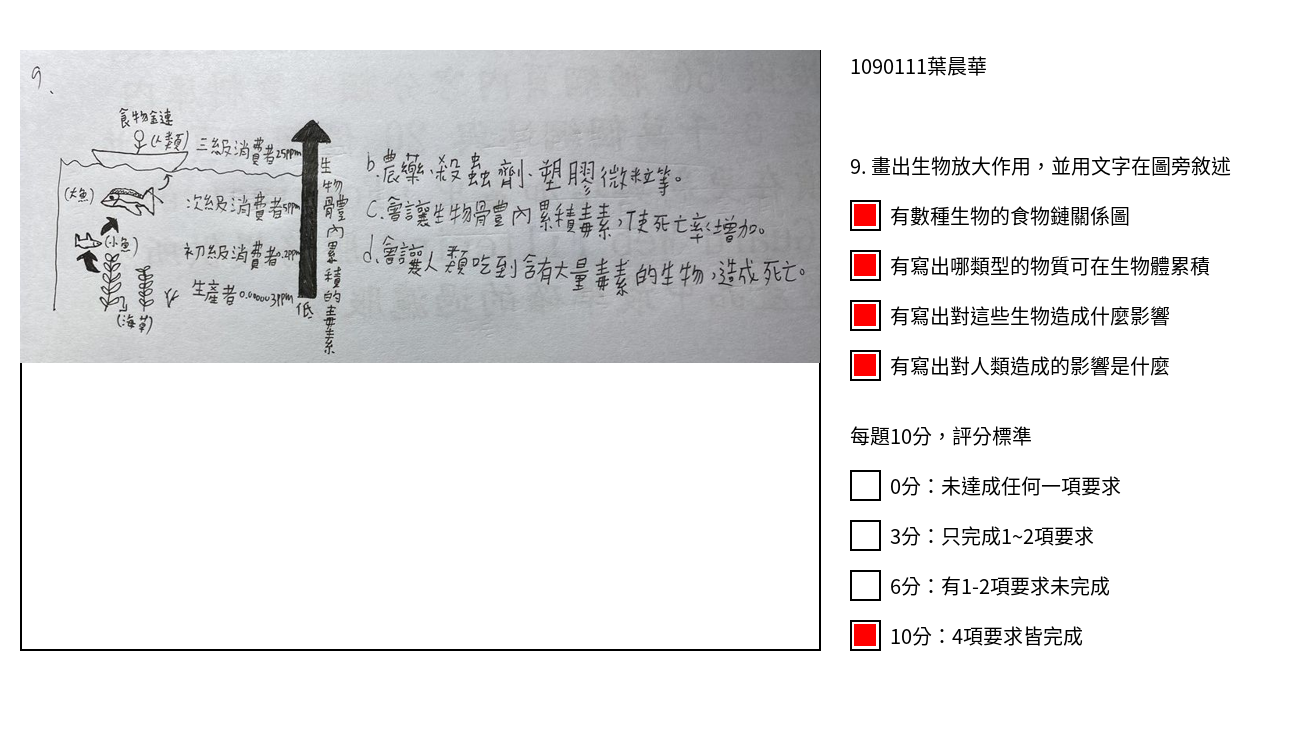 9.
食物金連
(人類)
三級消費者25ppm
(大魚)
次級消費者5ppm
(小魚)
初級消費者0.2ppm
生產者0.00003ppm
(海草)
低
生物體內累積的毒素
b.農藥、殺蟲劑、塑膠微粒等。
c.會讓生物體內累積毒素,使死亡率增加。
d.會讓人類吃到含有大量毒素的生物,造成死亡。
1090111葉晨華
9. 畫出生物放大作用，並用文字在圖旁敘述
有數種生物的食物鏈關係圖
有寫出哪類型的物質可在生物體累積
有寫出對這些生物造成什麼影響
有寫出對人類造成的影響是什麼
每題10分，評分標準
0分：未達成任何一項要求
3分：只完成1~2項要求
6分：有1-2項要求未完成
10分：4項要求皆完成